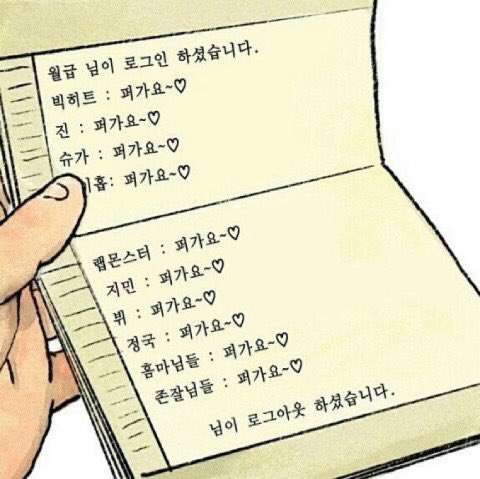 월급 님이 로그인 하셨습니다.
빅히트 : 퍼가요~♡
진 : 퍼가요~♡
슈가 : 퍼가요~♡
홉: 퍼가요~♡
랩몬스터 : 퍼가요~♡
지민 : 퍼가요~♡
뷔 : 퍼가요~♡
정국 : 퍼가요~♡
홈마님들 : 퍼가요~♡
존잘님들 : 퍼가요~♡
님이 로그아웃 하셨습니다.